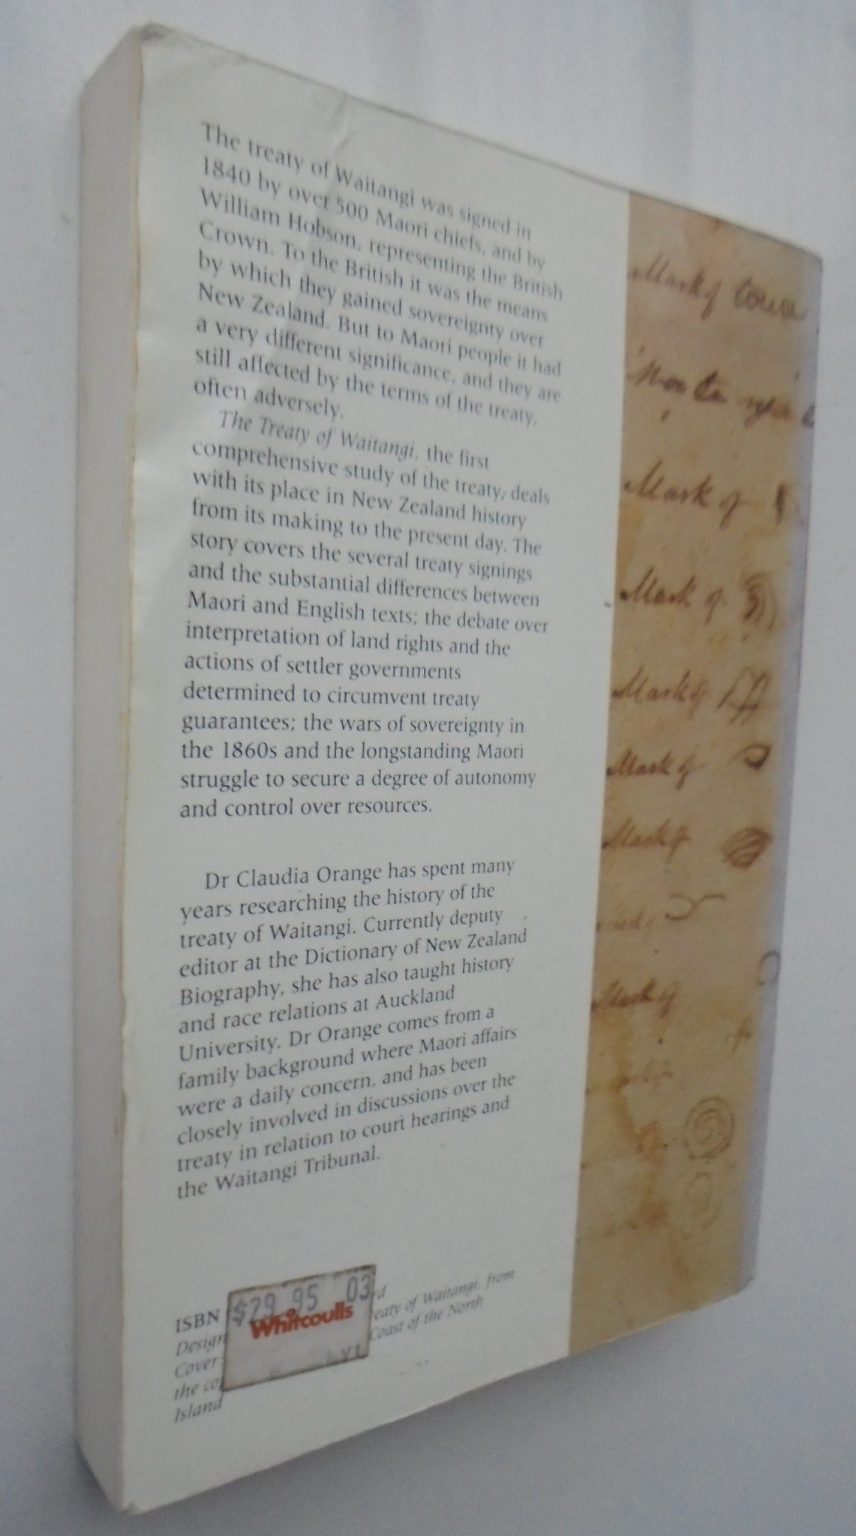 The treaty of Waitangi was signed in
1840 by over 500 Maori chiefs, and by
William Hobson, representing the British
Crown. To the British it was the means
by which they gained sovereignty over
New Zealand. But to Maori people it had
a very different significance, and they are
still affected by the terms of the treaty,
often adversely.
The Treaty of Waitangi, the first
comprehensive study of the treaty, deals
with its place in New Zealand history
from its making to the present day. The
story covers the several treaty signings
and the substantial differences between
Maori and English texts; the debate over
interpretation of land rights and the
actions of settler governments
determined to circumvent treaty
guarantees; the wars of sovereignty in
the 1860s and the longstanding Maori
struggle to secure a degree of autonomy
and control over resources.
Dr Claudia Orange has spent many
years researching the history of the
treaty of Waitangi. Currently deputy
editor at the Dictionary of New Zealand
Biography, she has also taught history
and race relations at Auckland
University. Dr Orange comes from a
family background where Maori affairs
were a daily concern, and has been
closely involved in discussions over the
treaty in relation to court hearings and
the Waitangi Tribunal.
ISBN
Design
Cover
the
of Waitangi, from
Coast of the North
Island
$29.95 03
Whitcoulls
Mark of
Mark of
Mark of
Mark of
Mark of
Mark of
Mark of